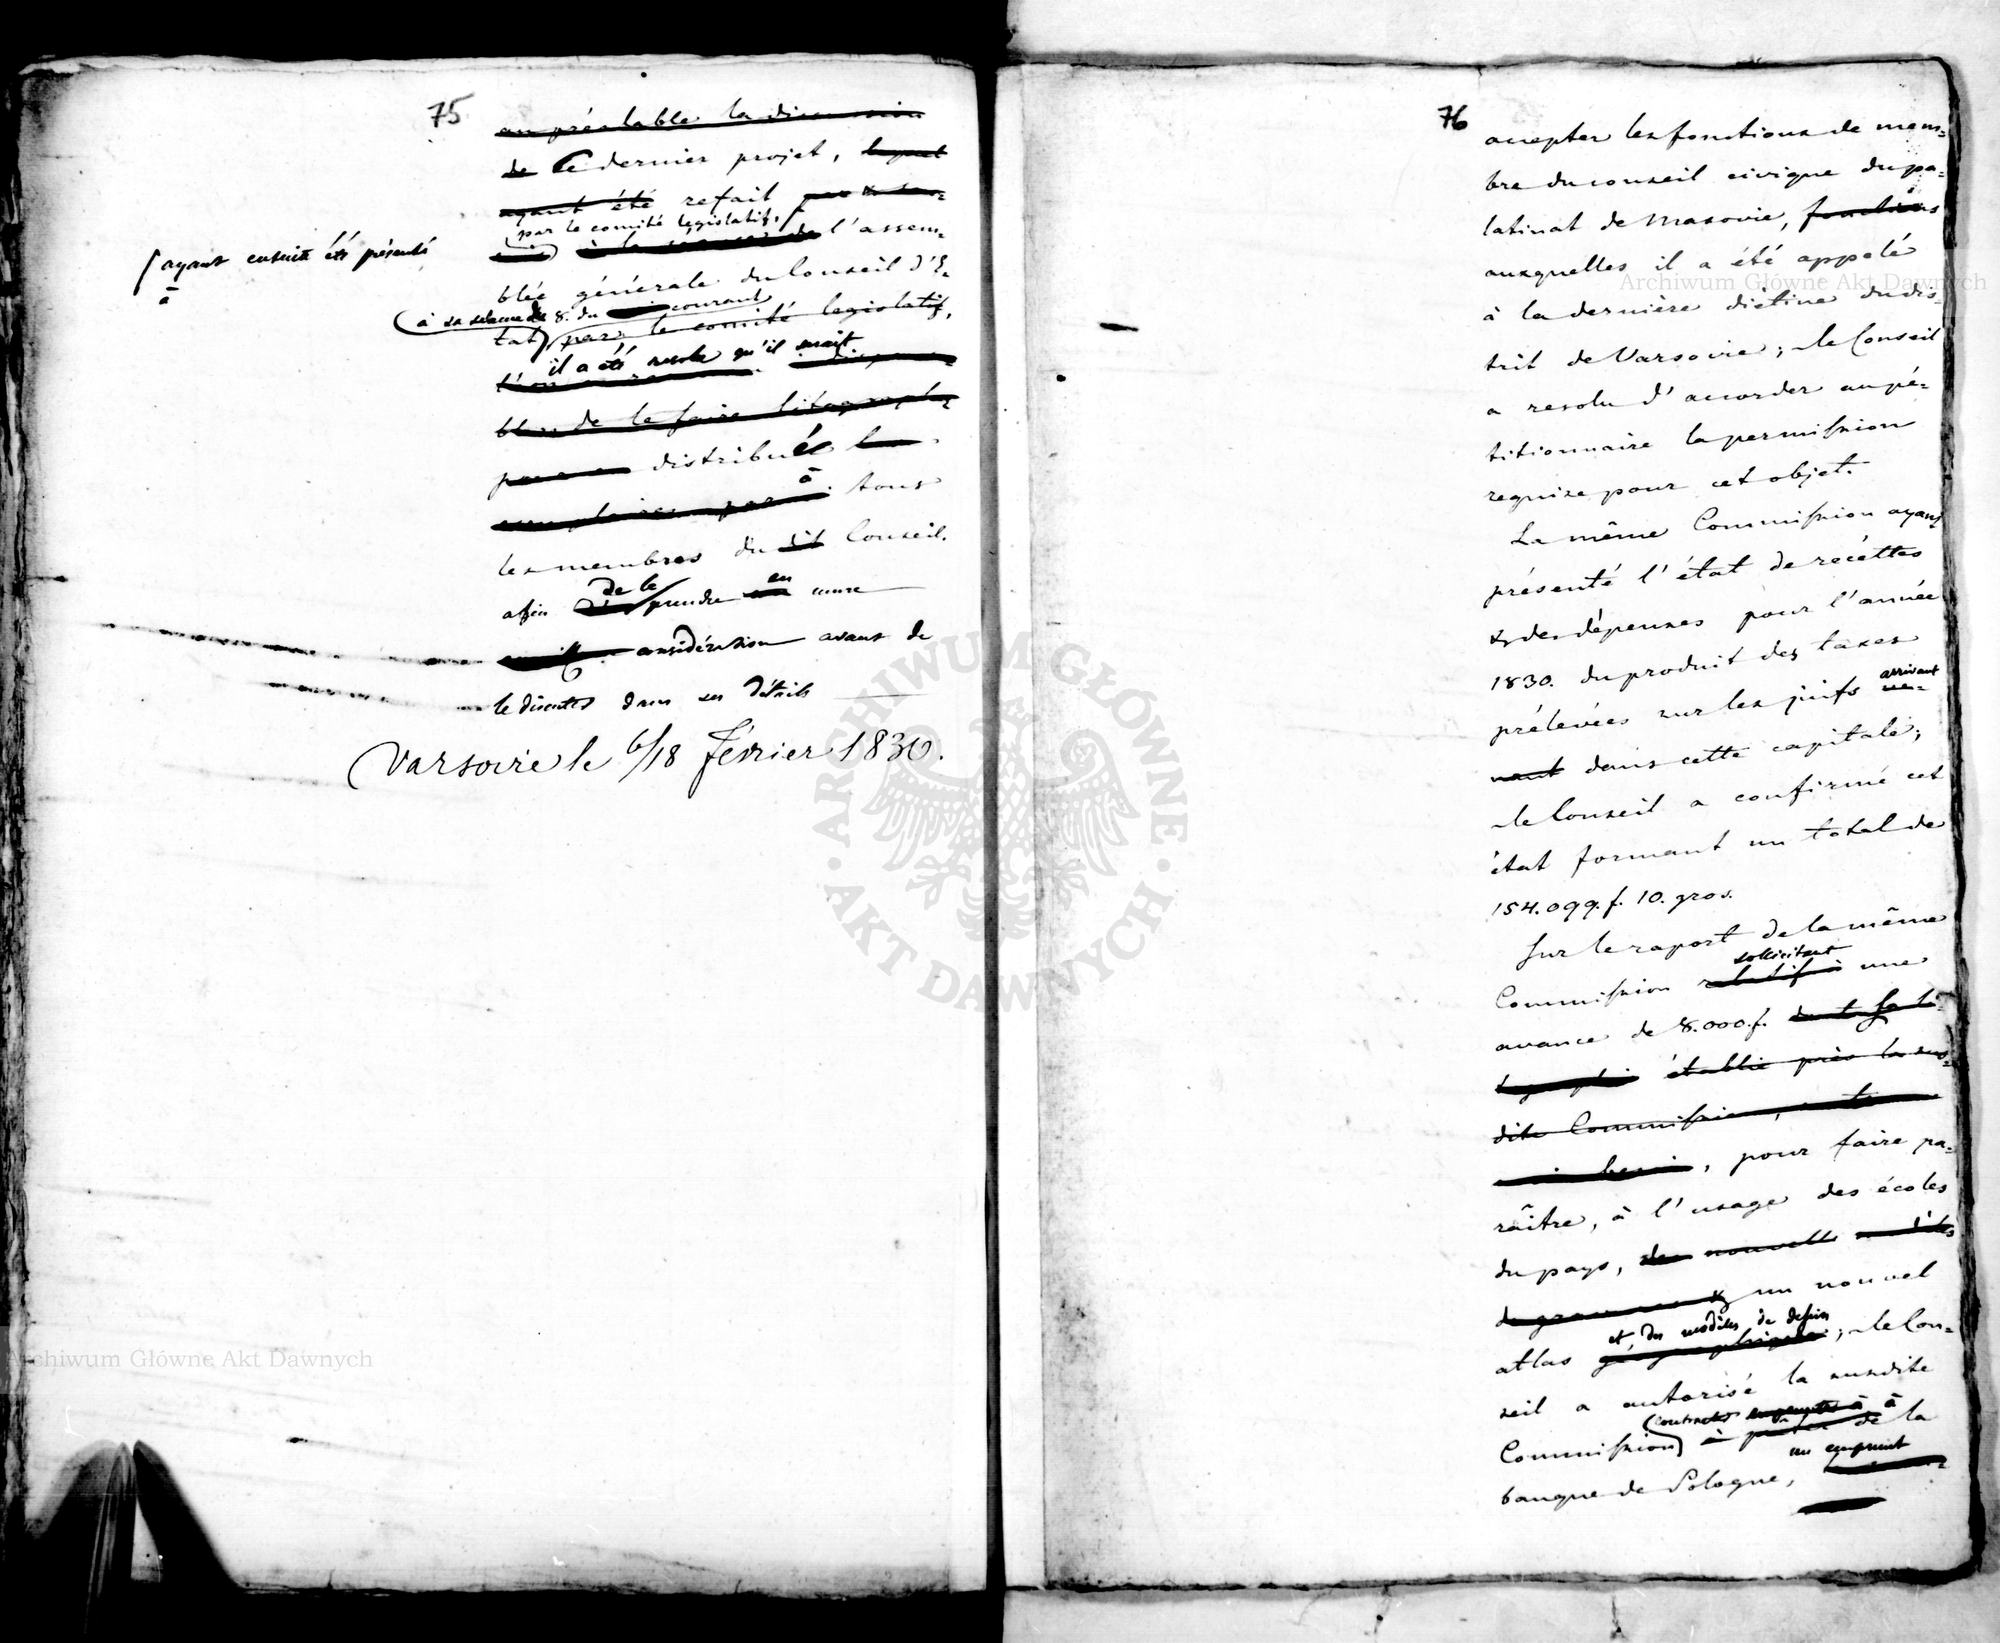 75
au préalable la discussion
de Ce dernier projet, lequel
ayant été refait
par le comité legislatif,
à la séance de l'assem-
(ayant ensuite été présenté
à
blée générale du Conseil d'E-
(à sa séance du 8. du courant
tat) par le comité legislatif,
il a été resolu qu'il serait
bles de le faire litographier
pour en distribué les
exemplaires parmi à tous
les membres du dit Conseil.
de le en
afin prendre mure
considération avant de
le discuter dans ses détails
Varsovie le 6/18 Février 1830.
76
accepter les fonctions de mem-
bre du conseil civique du pa-
latinat de Masovie, fonctions
auxquelles il a été appelé
à la dernière diétine du dis-
trict de Varsovie; le Conseil
a resolu d'accorder au pé-
titionnaire la permission
requise pour cet objet.
La même Commission ayant
présenté l'état de recéttes
& des dépenses pour l'année
1830. du produit des taxes
arrivant
prélevées sur les juifs ve-
nant dans cette capitale;
le Conseil a confirmé cet
état formant un total de
154.099.f. 10. gros.
Sur le raport de la même
sollicitant
Commission relatif à une
avance de 8.000.f. dont la li-
tographie établie près la sus-
dite Commission,
besoin, pour faire pa-
raître, à l'usage des écoles
du pays, de nouvelle
un nouvel
et des modèles de dessin
atlas géographique; le Con-
seil a autorisé la susdite
(contracter à
Commission) à de la
un emprunt
banque de Pologne,
Archiwum Główne Akt Dawnych
Archiwum Główne Akt Dawnych
ARCHIWUM GŁÓWNE · AKT DAWNYCH ·